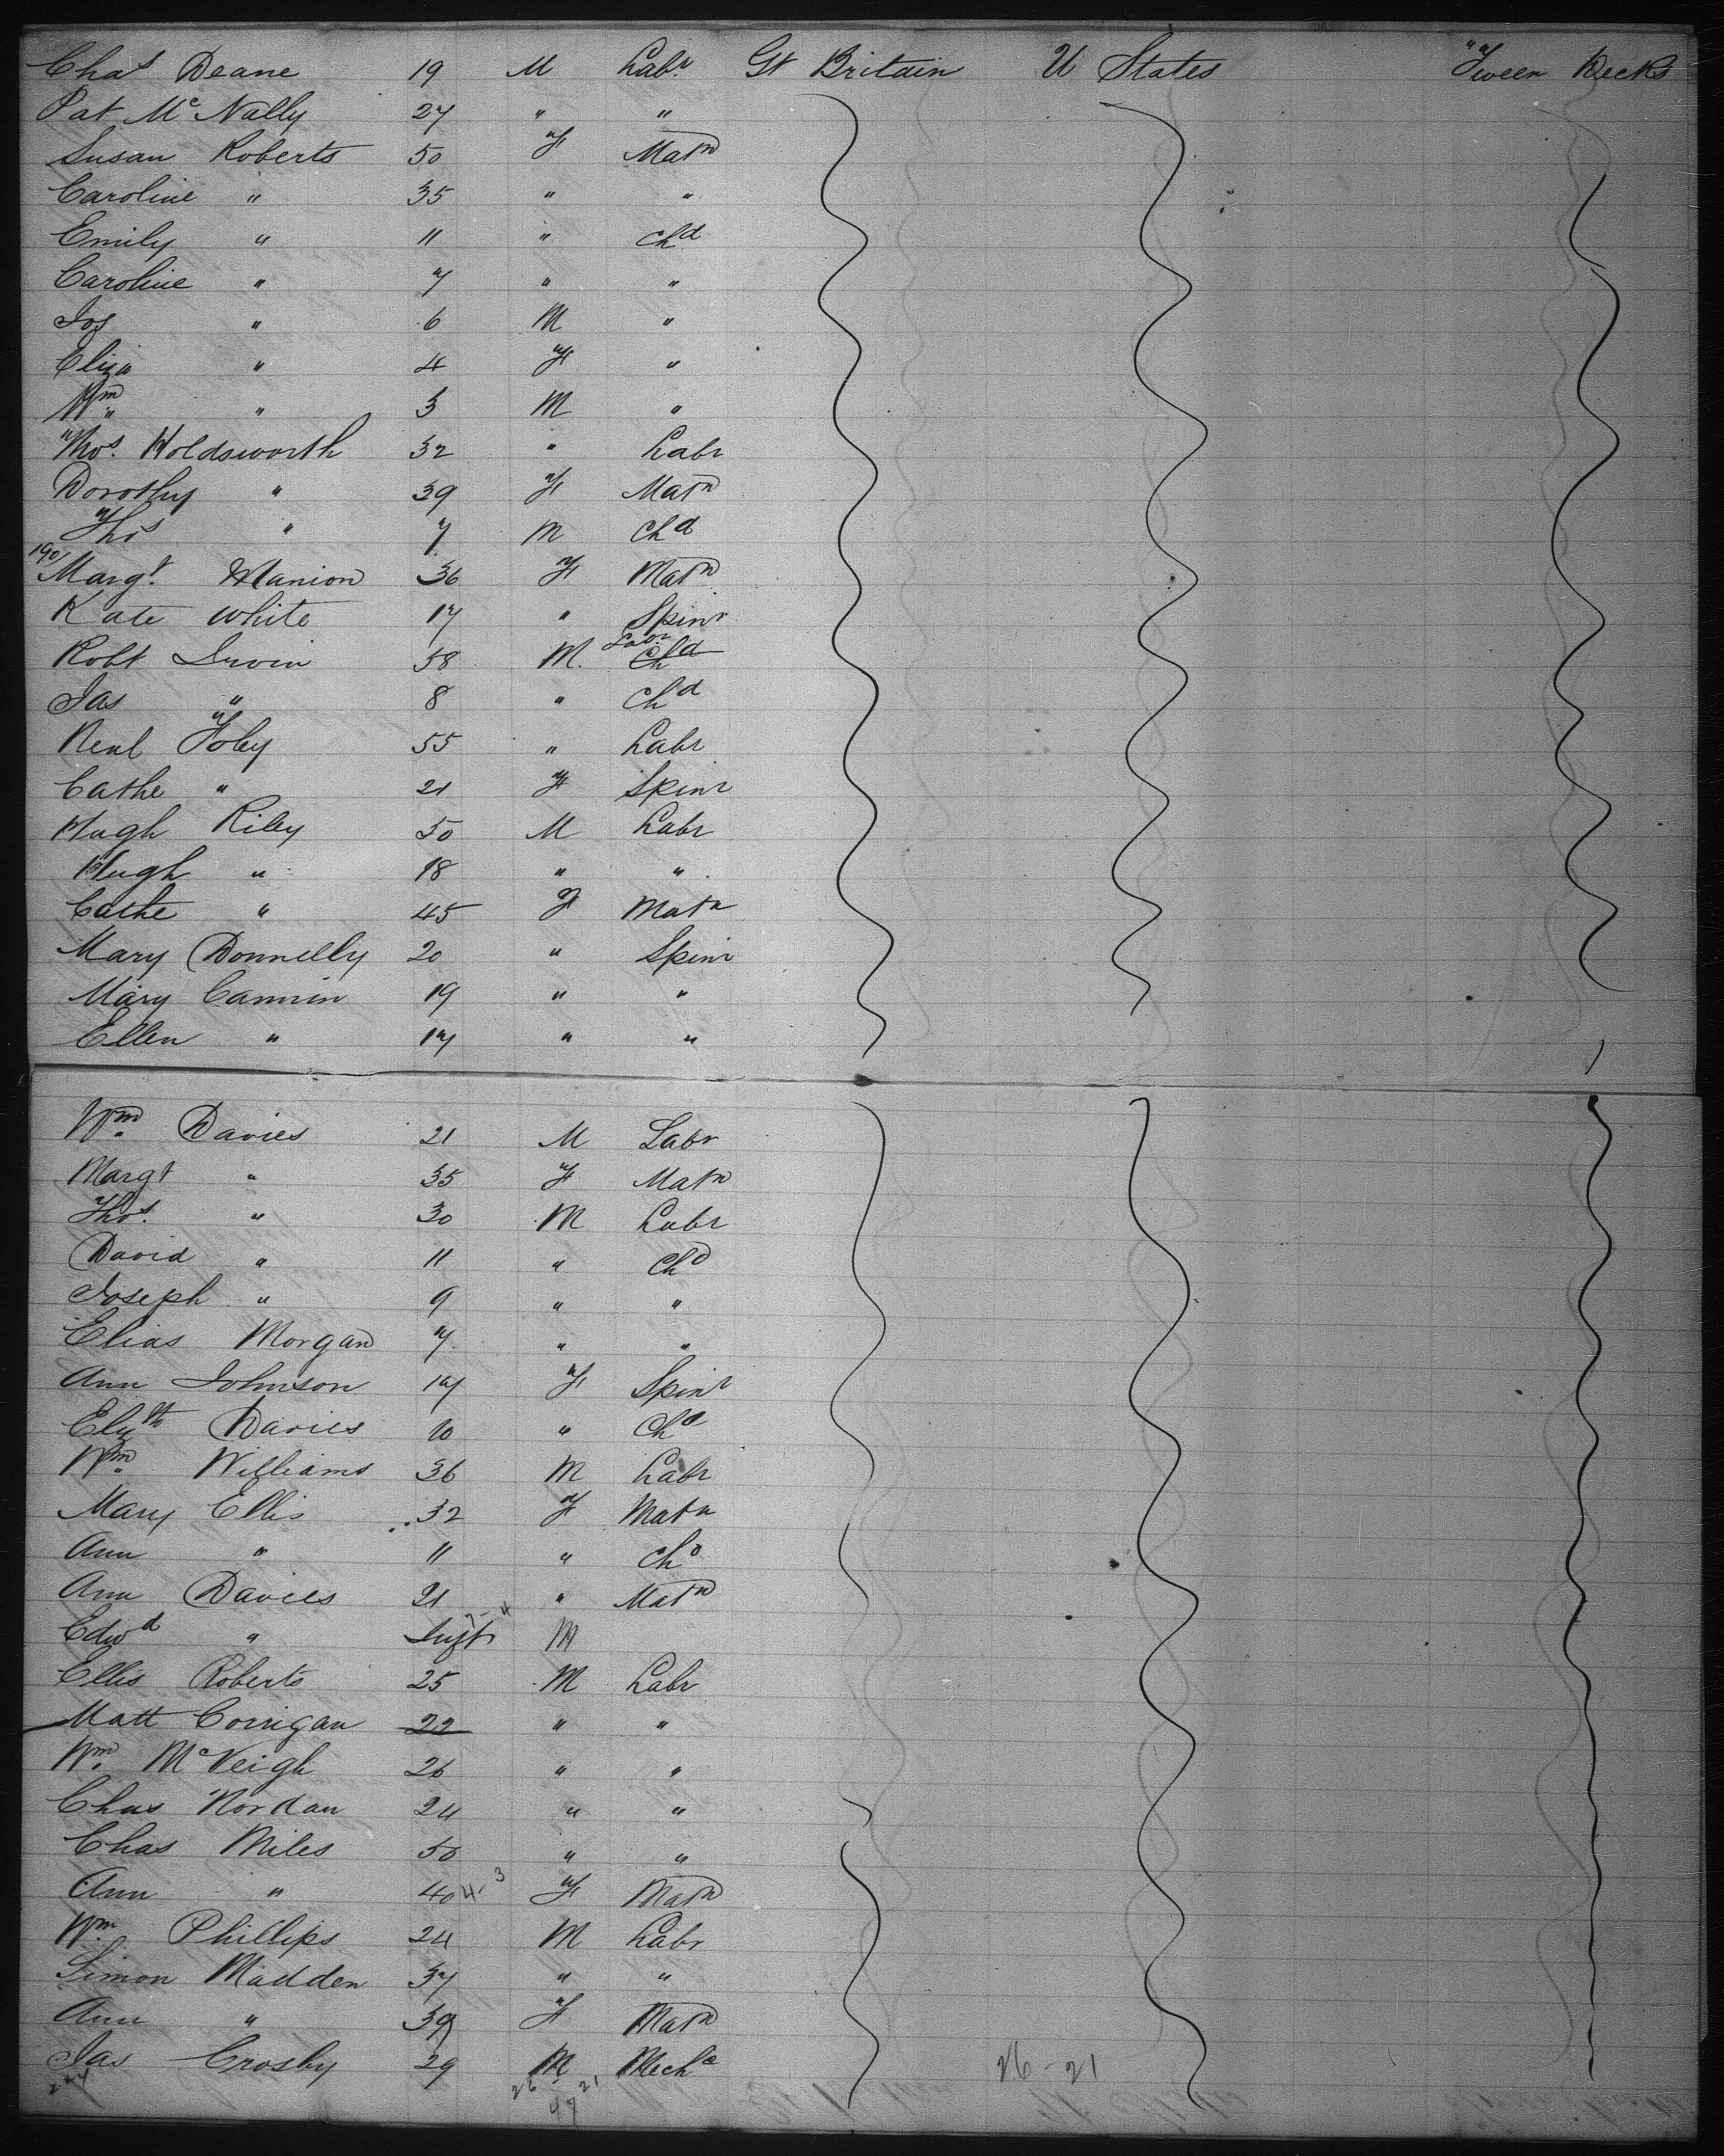 Chas Deane 19 M Labr Gt Britain U States 'Tween Decks
Pat McNally 27 " "
Susan Roberts 50 F Matn
Caroline " 35 " "
Emily " 11 " Chd
Caroline " 7 " "
Jos " 6 M "
Eliza " 4 F "
Wm " 3 M "
Thos. Holdsworth 32 " Labr
Dorothy " 39 F Matn
Thos " 7 M Chd
190 Margt. Manion 36 F Matn
Kate White 17 " Spinr
Robt Irvin 58 M. Labr Chd
Jas " 8 " Chd
Neal Foley 55 " Labr
Cathe " 21 F Spinr
Hugh Riley 50 M Labr
Hugh " 18 " "
Cathe " 45 F Matn
Mary Donnelly 20 " Spinr
Mary Cannin 19 " "
Ellen " 17 " "
Wm. Davies 21 M Labr
Margt " 35 F Matn
Thos. " 30 M Labr
David " 11 " Chd
Joseph " 9 " "
Elias Morgan 7 " "
Ann Johnson 17 F Spinr
Elizth Davies 10 " Chd
Wm. Williams 36 M Labr
Mary Ellis 32 F Matn
Ann " 11 " Chd
Ann Davies 21 " Matn
Edwd " Inft 7-4 M
Ellis Roberts 25 M Labr
Matt Corrigan 22 " "
Wm. McVeigh 26 " "
Chas Nordan 24 " "
Chas Miles 50 " "
Ann " 40 4-3 F Matn
Wm. Phillips 24 M Labr
Simon Madden 37 " "
Ann " 39 F Matn
Jas Crosby 29 M Mechc 26-21
26 21
47